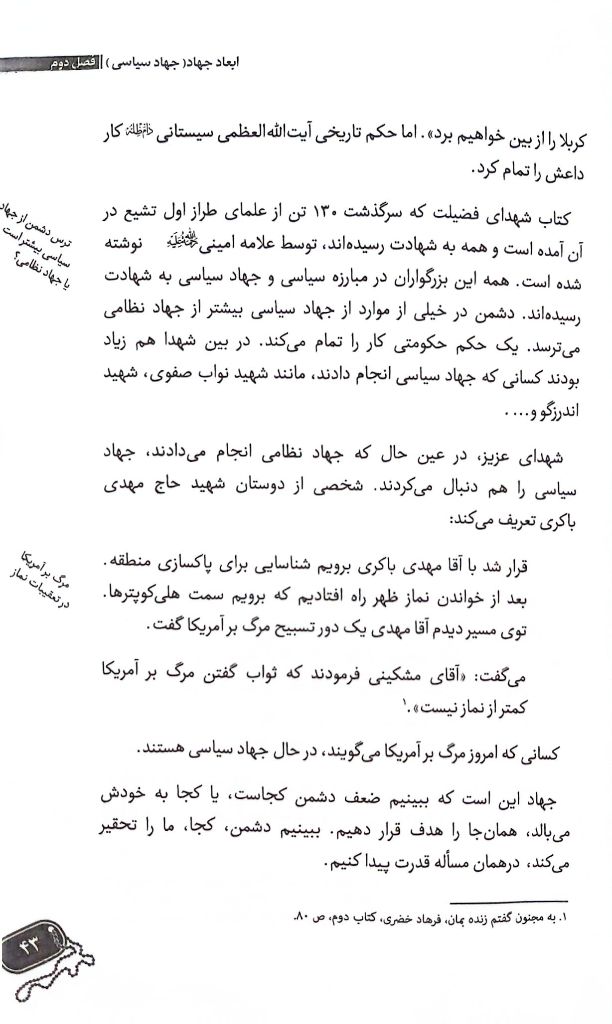 ابعاد جهاد( جهاد سیاسی ) | فصل دوم
کربلا را از بین خواهیم برد». اما حکم تاریخی آیت‌الله‌العظمی سیستانی دام‌ظله کار
داعش را تمام کرد.
ترس دشمن از جهاد
سیاسی بیشتر است
یا جهاد نظامی؟
کتاب شهدای فضیلت که سرگذشت ۱۳۰ تن از علمای طراز اول تشیع در
آن آمده است و همه به شهادت رسیده‌اند، توسط علامه امینی نوشته
شده است. همه این بزرگواران در مبارزه سیاسی و جهاد سیاسی به شهادت
رسیده‌اند. دشمن در خیلی از موارد از جهاد سیاسی بیشتر از جهاد نظامی
می‌ترسد. یک حکم حکومتی کار را تمام می‌کند. در بین شهدا هم زیاد
بودند کسانی که جهاد سیاسی انجام دادند، مانند شهید نواب صفوی، شهید
اندرزگو و....
شهدای عزیز، در عین حال که جهاد نظامی انجام می‌دادند، جهاد
سیاسی را هم دنبال می‌کردند. شخصی از دوستان شهید حاج مهدی
باکری تعریف می‌کند:
مرگ بر آمریکا
در تعقیبات نماز
قرار شد با آقا مهدی باکری برویم شناسایی برای پاکسازی منطقه.
بعد از خواندن نماز ظهر راه افتادیم که برویم سمت هلی‌کوپترها.
توی مسیر دیدم آقا مهدی یک دور تسبیح مرگ بر آمریکا گفت.
می‌گفت: «آقای مشکینی فرمودند که ثواب گفتن مرگ بر آمریکا
کمتر از نماز نیست».۱
کسانی که امروز مرگ بر آمریکا می‌گویند، در حال جهاد سیاسی هستند.
جهاد این است که ببینیم ضعف دشمن کجاست، یا کجا به خودش
می‌بالد، همان‌جا را هدف قرار دهیم. ببینیم دشمن، کجا، ما را تحقیر
می‌کند، درهمان مسأله قدرت پیدا کنیم.
۱. به مجنون گفتم زنده بمان، فرهاد خضری، کتاب دوم، ص ۸۰.
۴۳